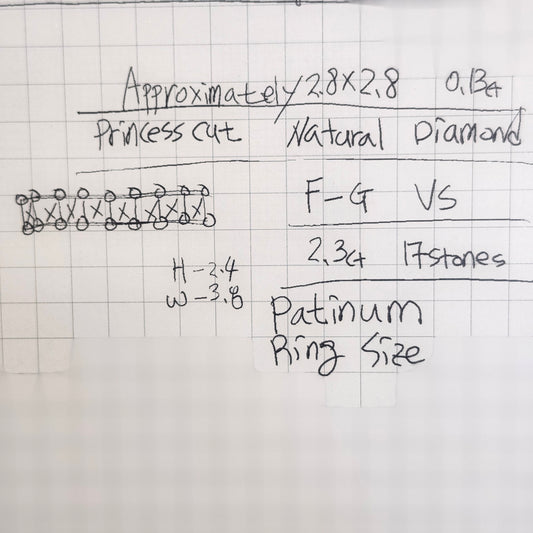 Approximately 2.8×2.8 0.13ct
Princess cut Natural Diamond
F-G VS
2.3ct 17stones
H-2.4
W-3.8
Patinum
Ring Size